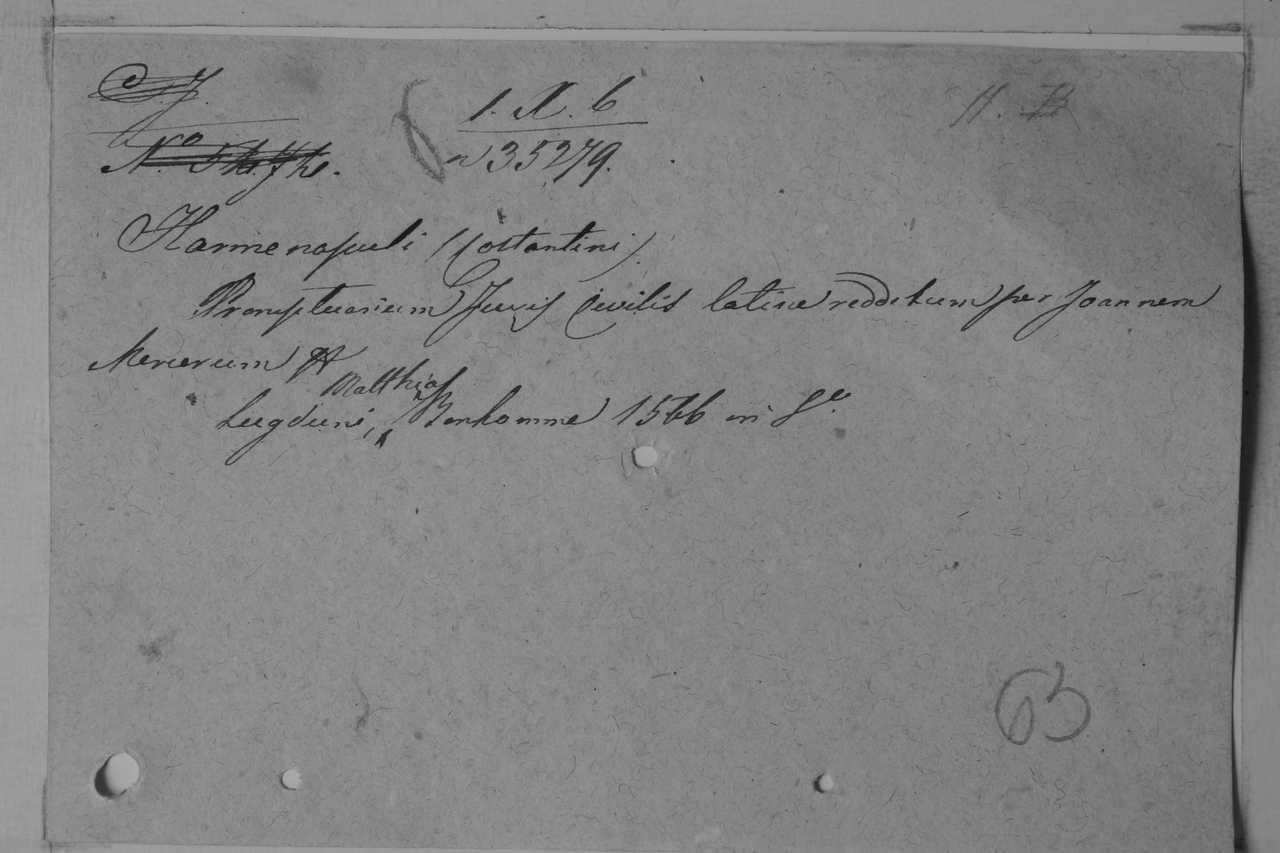 1. X. 6
N 35279.
Harmenopuli (Costantini)
Promptuarium Juris Civilis latine redditum per Joannem
Mercerum
Matthias
Lugduni, Bonhomme 1556 in 8º
63